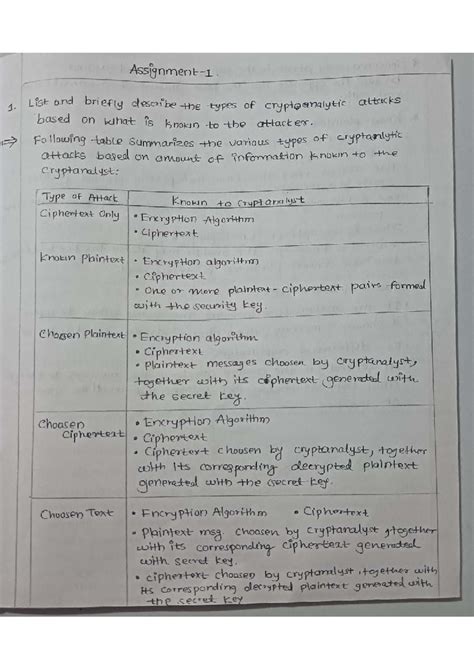 Assignment-1.
1. List and briefly describe the types of cryptoanalytic attacks
based on what is known to the attacker.
⇒ Following table summarizes the various types of cryptanlytic
attacks based on amount of information known to the
cryptanalyst:
Type of Attack | Known to cryptanalyst
Ciphertext Only | • Encryption Algorithm
• Ciphertext
Known Plaintext | • Encryption algorithm
• Ciphertext
• One or more plaintext-ciphertext pairs formed
with the security key.
Choosen Plaintext | • Encryption algorithm
• Ciphertext
• Plaintext messages choosen by cryptanalyst,
together with its ciphertext generated with
the secret key.
Choosen Ciphertext | • Encryption Algorithm
• Ciphertext
• Ciphertext choosen by cryptanalyst, together
with its corresponding decrypted plaintext
generated with the secret key.
Choosen Text | • Encryption Algorithm • Ciphertext
• Plaintext msg. choosen by cryptanalyst, together
with its corresponding ciphertext generated
with secret key.
• ciphertext choosen by cryptanalyst, together with
its corresponding decrypted plaintext generated with
the secret key